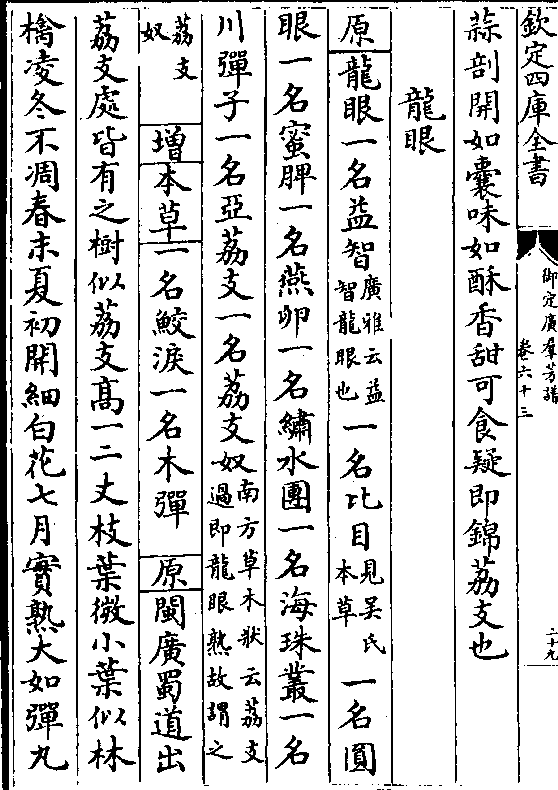 欽定四庫全書
御定廣羣芳譜
卷六十三
二十九
蒜剖開如囊味如酥香甜可食疑即錦荔支也
龍眼
原龍眼一名益智廣雅云益智龍眼也一名比目見吴氏本草一名圓
眼一名蜜脾一名燕卵一名繡水團一名海珠叢一名
川彈子一名亞荔支一名荔支奴南方草木狀云荔支過即龍眼熟故謂之
荔支奴增本草一名鮫淚一名木彈原閩廣蜀道出
荔支處皆有之樹似荔支高一二丈枝葉微小葉似林
檎凌冬不凋春末夏初開細白花七月實熟大如彈丸